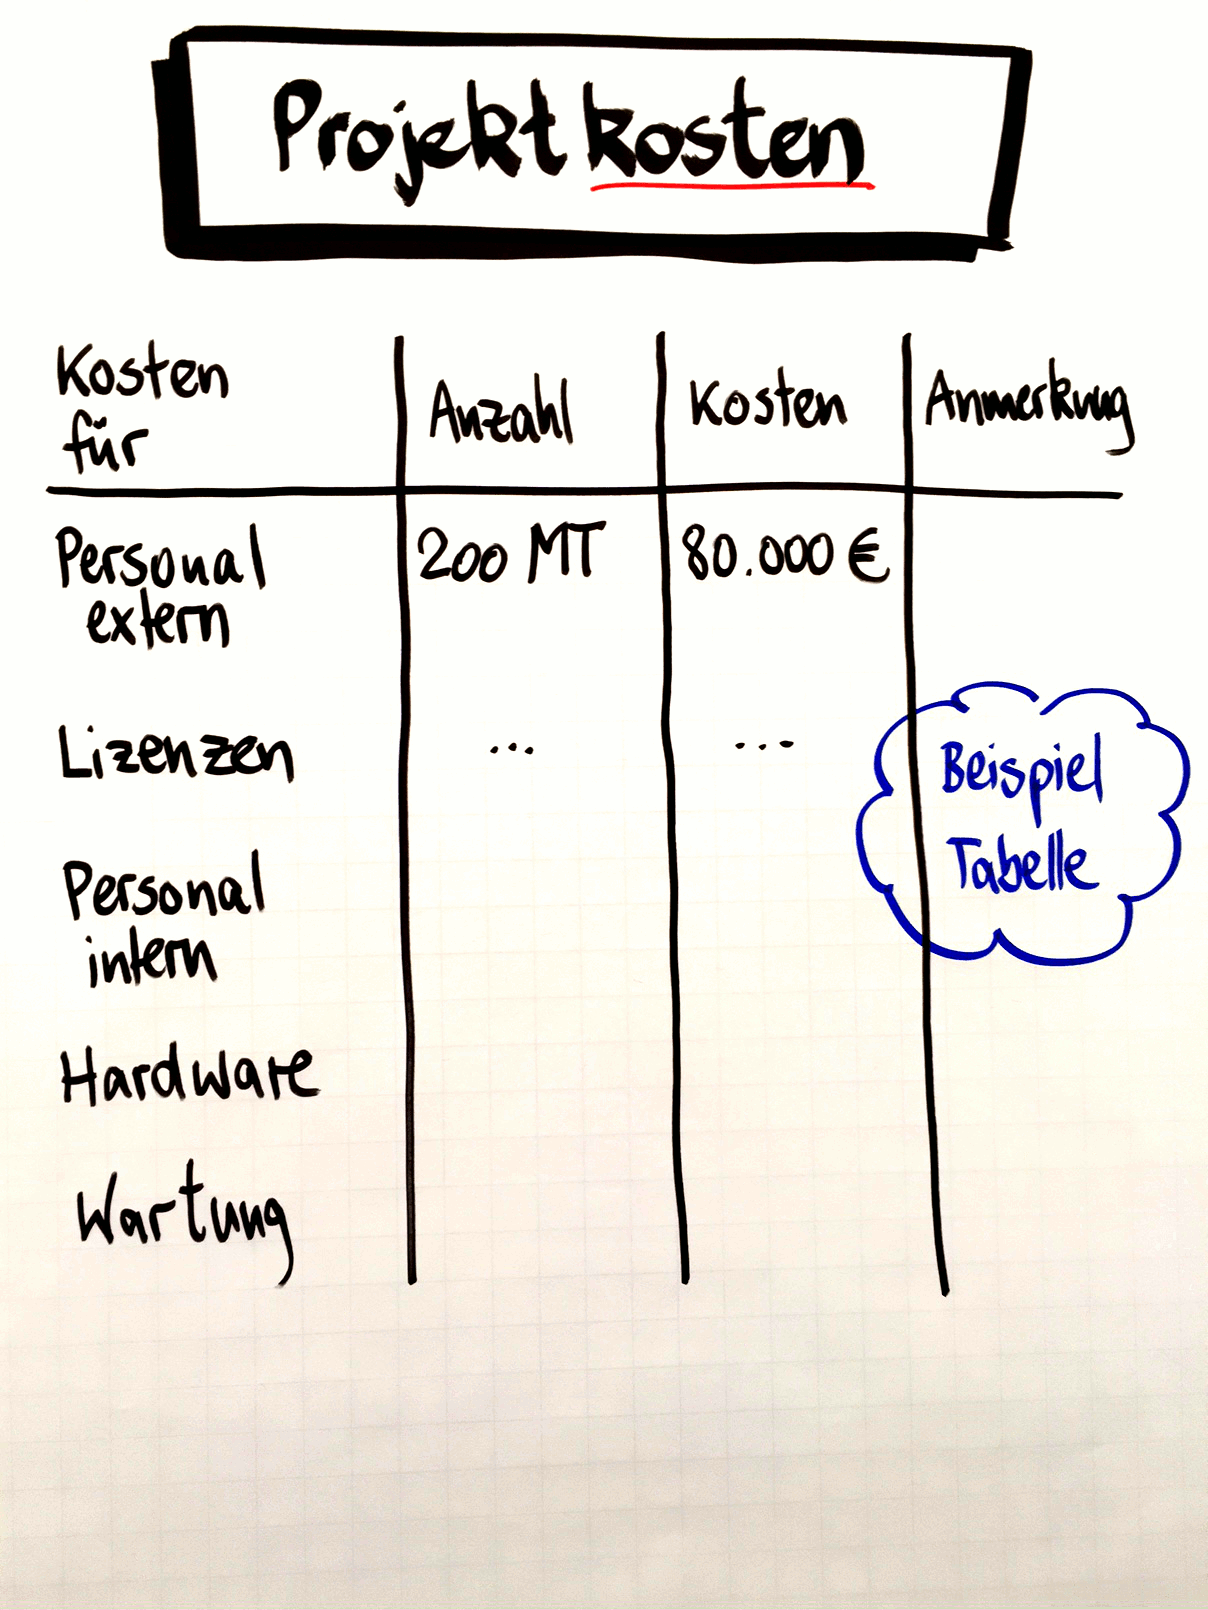 Projektkosten
Kosten
für
Anzahl
Kosten
Anmerkung
Personal
extern
200 MT
80.000 €
Lizenzen
...
...
Beispiel
Tabelle
Personal
intern
Hardware
Wartung